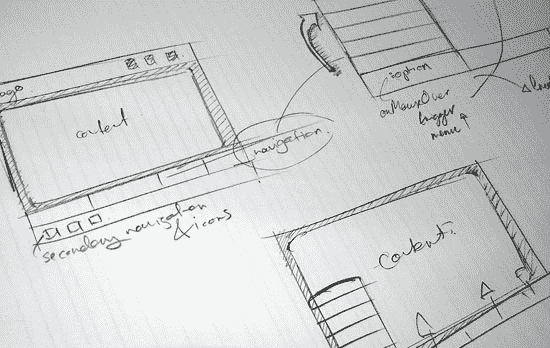 content
navigation.
secondary navigation
& icons
option
onMouseOver
trigger
menu
Content.